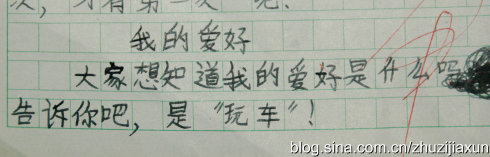 次，才有第一次"呢！
我的爱好
大家想知道我的爱好是什么吗
告诉你吧，是"玩车"！
blog.sina.com.cn/zhuzijiaxun